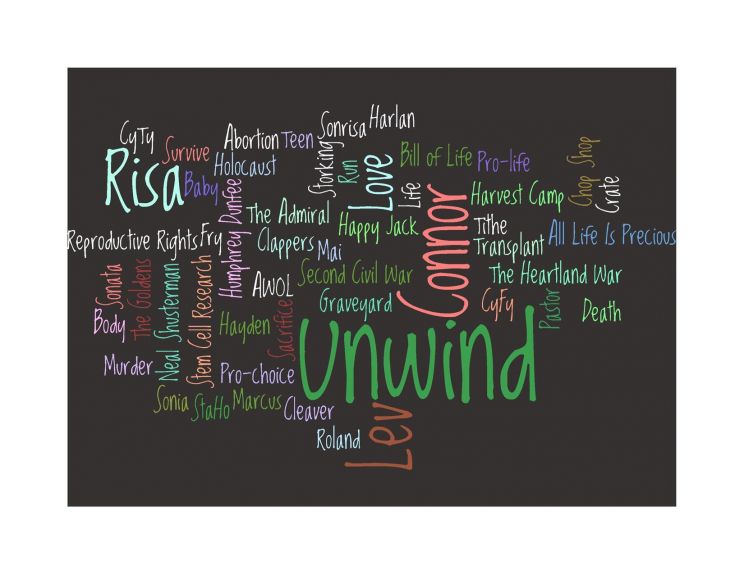 CyTy
Survive
Risa
Baby
Abortion
Teen
Holocaust
Sonrisa
Harlan
Storking
Run
Love
Life
Bill of Life
Pro-life
Chop Shop
Crate
Harvest Camp
Connor
Tithe
Transplant
All Life Is Precious
The Admiral
Happy Jack
Clappers
Mai
Humphrey Dunfee
Reproductive Rights
Fry
Sonata
The Goldens
Neal Shusterman
Stem Cell Research
AWOL
Second Civil War
The Heartland War
Graveyard
CyFy
Pastor
Death
Body
Hayden
Sacrifice
Unwind
Murder
Pro-choice
Sonia
StaHo
Marcus
Cleaver
Lev
Roland